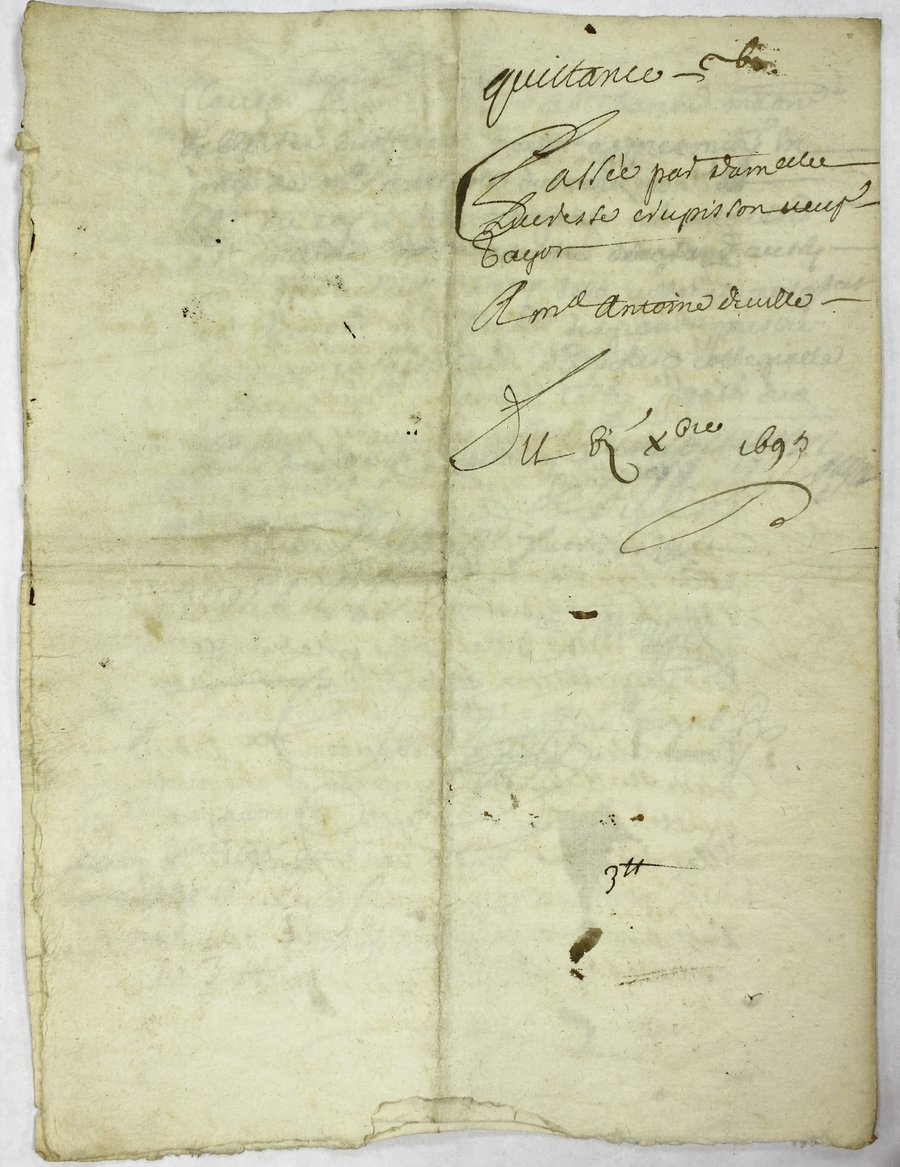 quittance
Passée par damelle
Lucresse crupisson veufe
Bayon
A mr Antoine dieulle
Du xbre 1695
3tt